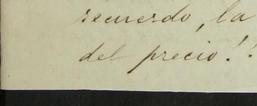 recuerdo, la
del precio!!